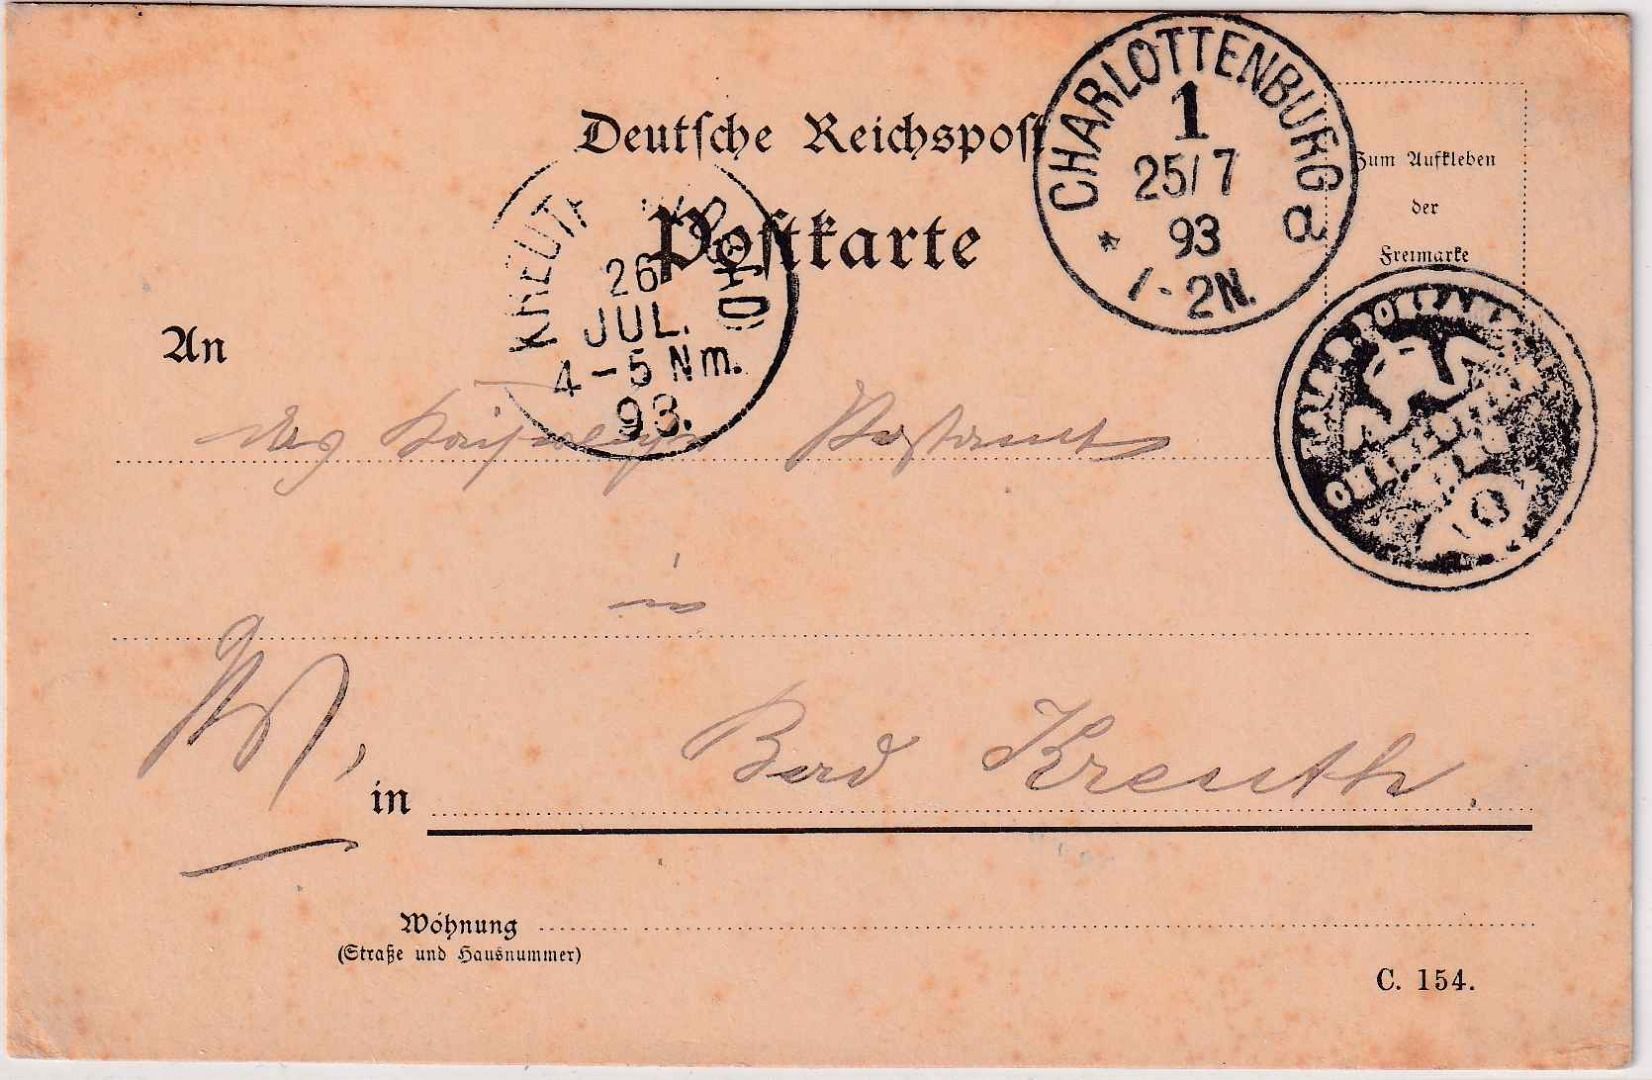 Deutsche Reichspost
CHARLOTTENBURG
1
25/7
93
* a
1-2N.
Zum Aufkleben
der
Freimarke
Postkarte
KREUTH
26
JUL.
4-5 Nm.
93.
An
das Kaiserliche Postamt
in
Bad Kreuth.
in
Wohnung
(Straße und Hausnummer)
C. 154.